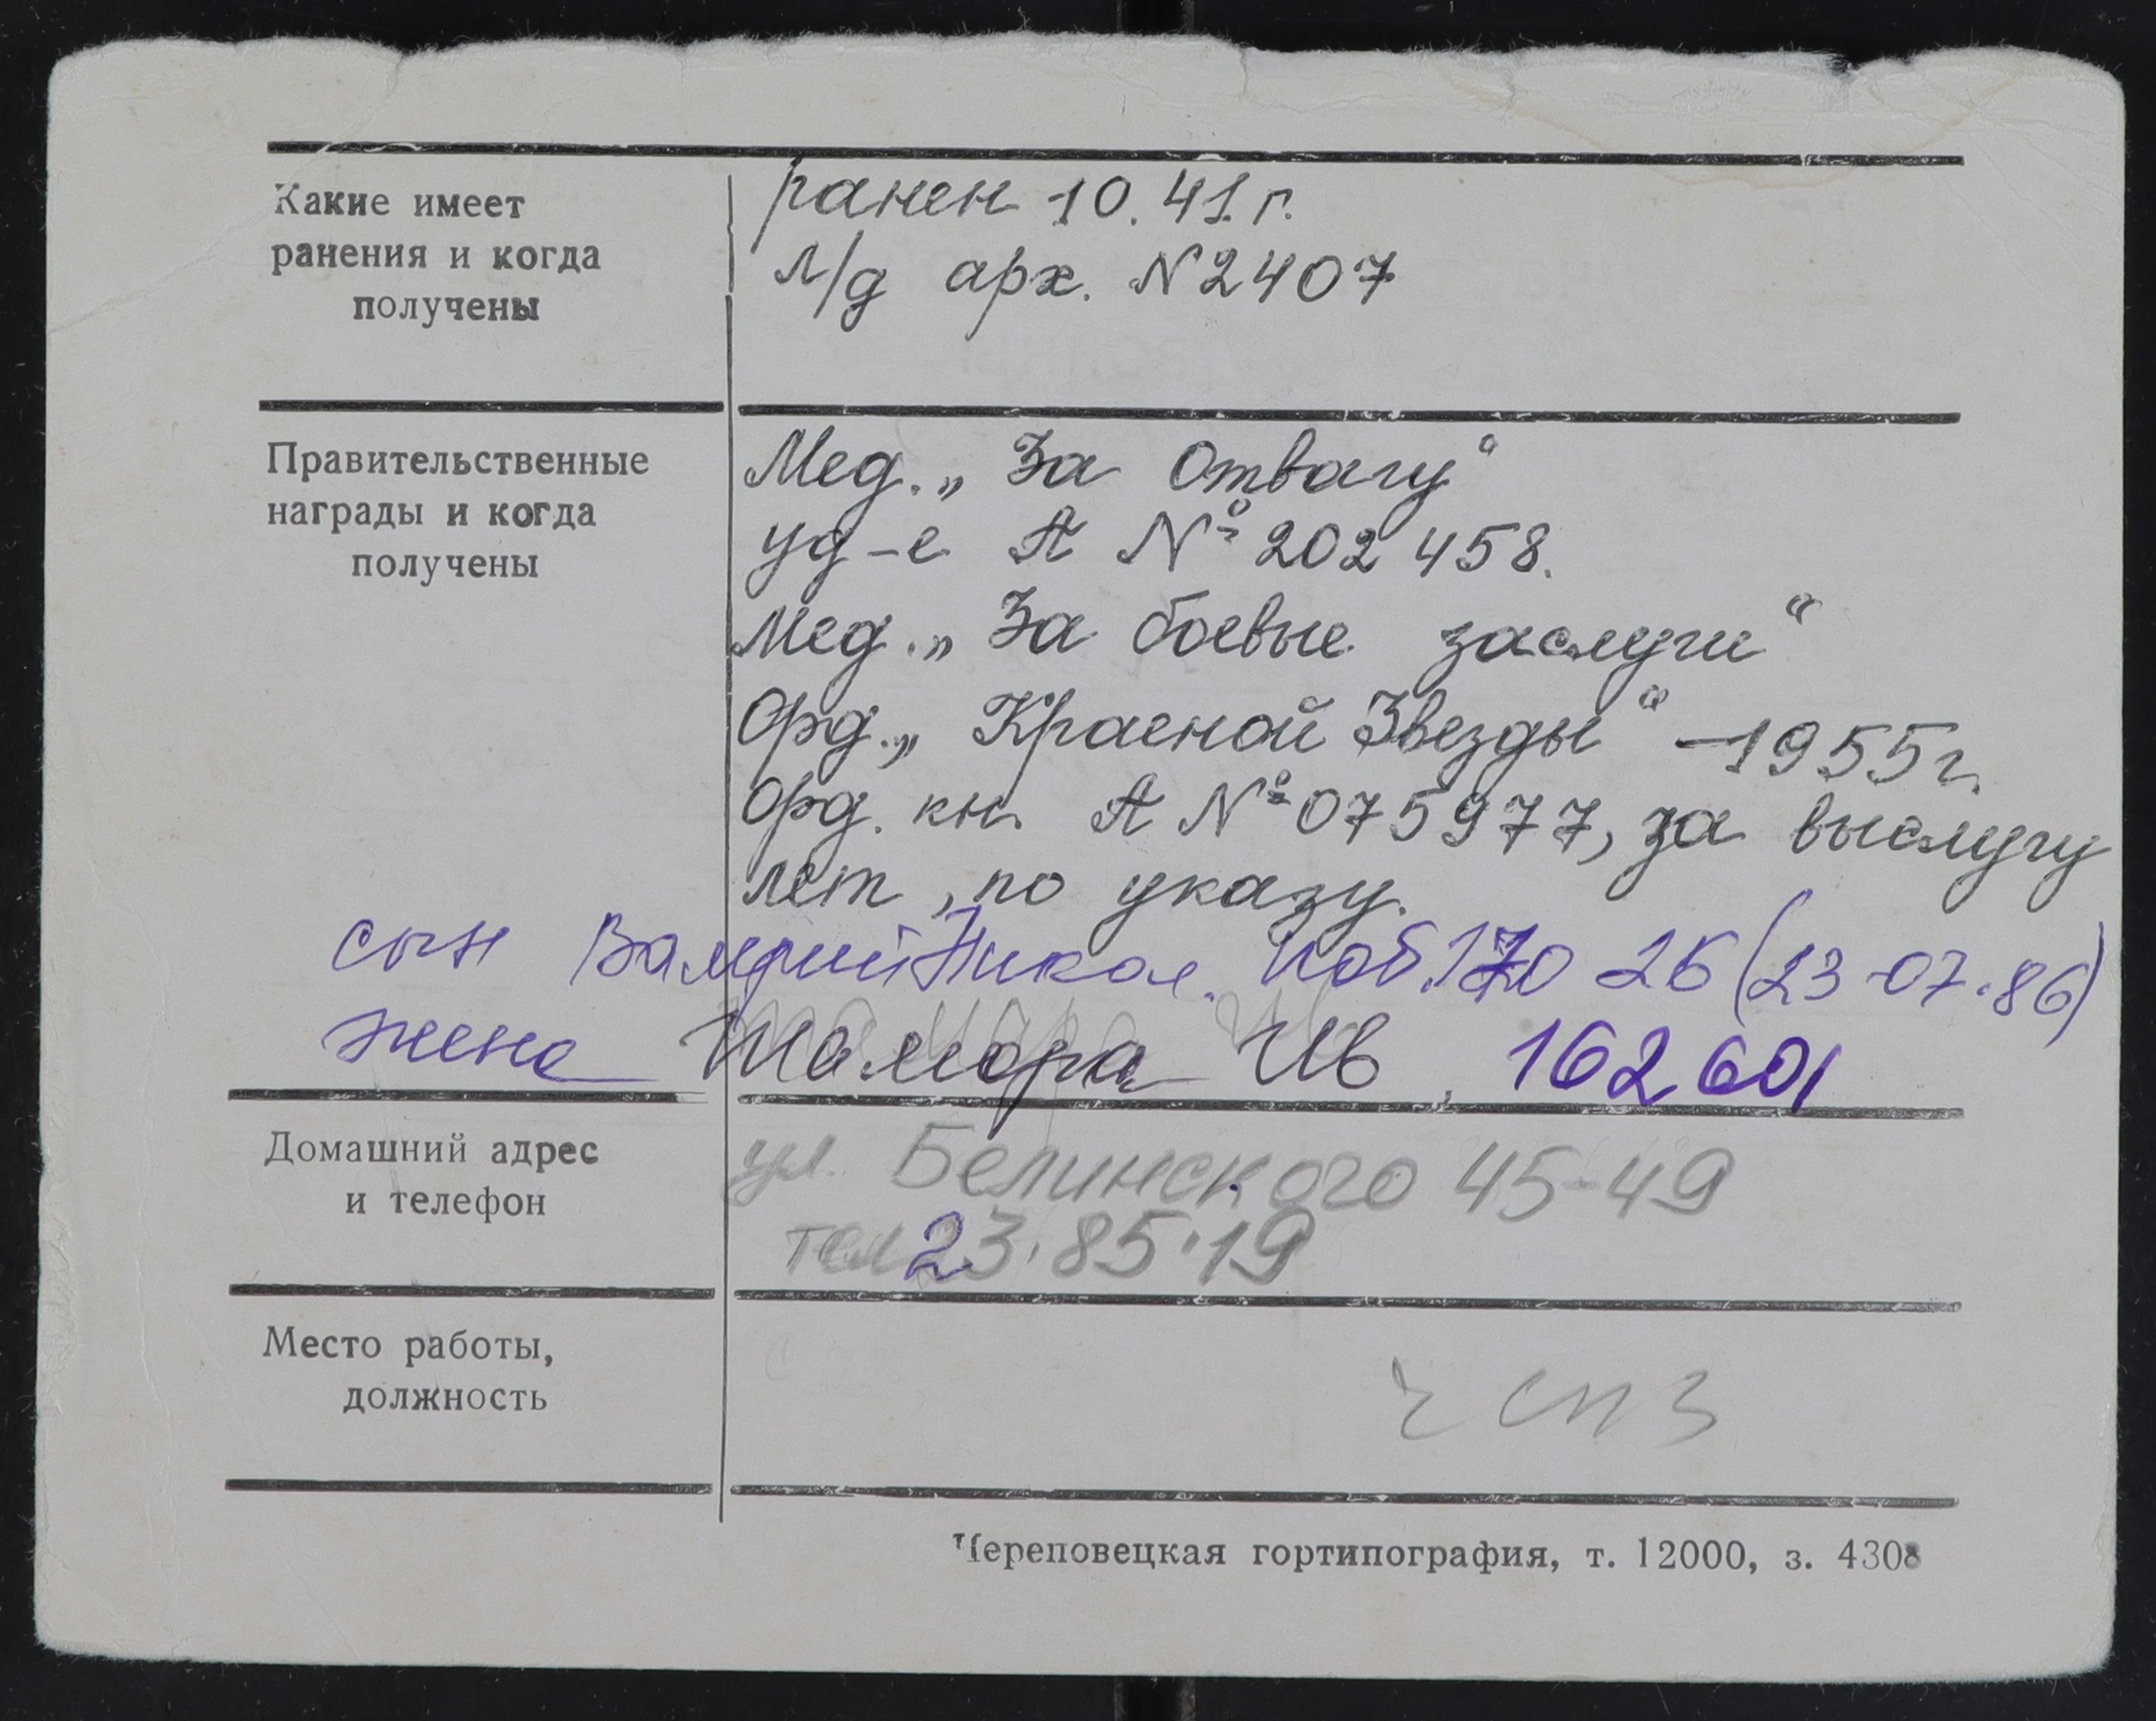 Какие имеет
ранения и когда
получены
ранен 10.41. г.
л/д арх. N 2407
Правительственные
награды и когда
получены
Мед. „За Отвагу“
уд-е А № 202458.
Мед. „За боевые заслуги“
Орд. „Красной Звезды“ – 1955 г.
Орд. кн. А № 075977, за выслугу
лет, по указу.
сын Валерий Никол. Поб. 170 26 (23-07-86)
жена Тамара Ив. 162601
Домашний адрес
и телефон
ул. Белинского 45-49
тел 23.85.19
Место работы,
должность
ЧСПЗ
Череповецкая гортипография, т. 12000, з. 4308